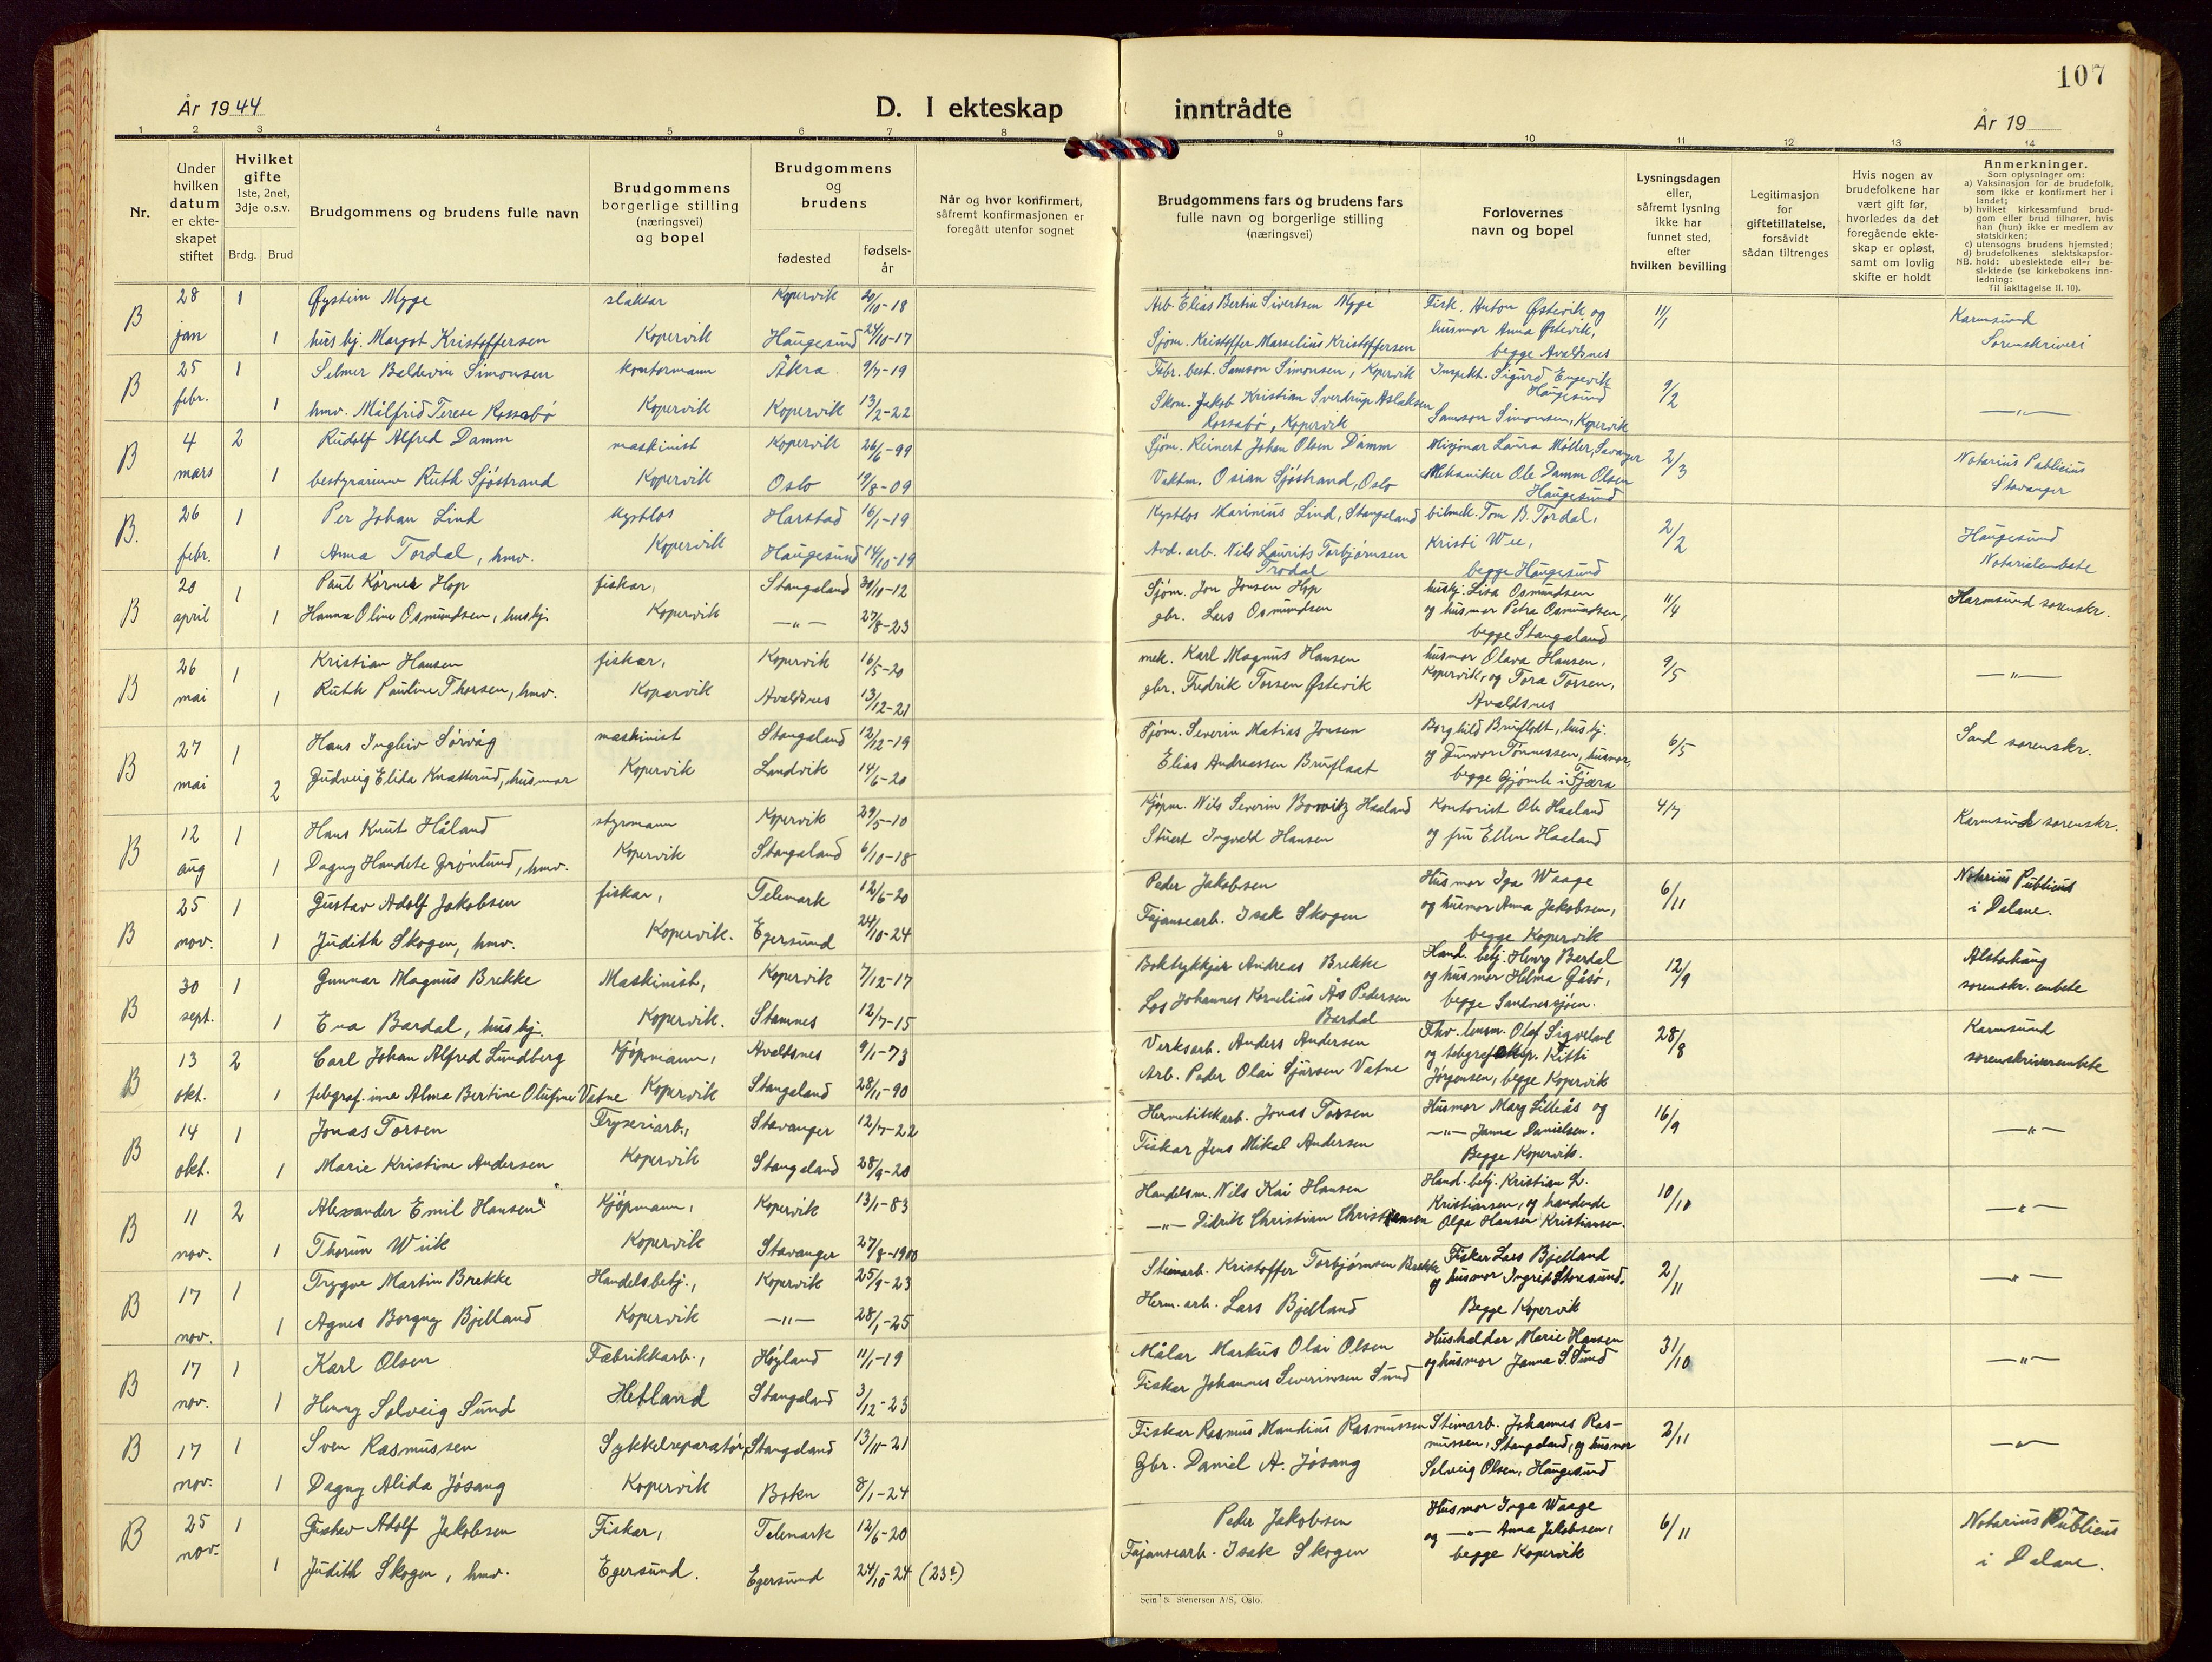 107
År 1944
D. I ekteskap inntrådte
År 19
1 2 3 4 5 6 7 8 9 10 11 12 13 14
Nr.
Under hvilken datum er ekteskapet stiftet
Hvilket gifte 1ste, 2net, 3dje o.s.v.
Brdg. Brud
Brudgommens og brudens fulle navn
Brudgommens borgerlige stilling (næringsvei) og bopel
Brudgommens og brudens
fødested
fødselsår
Når og hvor konfirmert, såfremt konfirmasjonen er foregått utenfor sognet
Brudgommens fars og brudens fars fulle navn og borgerlige stilling (næringsvei)
Forlovernes navn og bopel
Lysningsdagen eller, såfremt lysning ikke har funnet sted, efter hvilken bevilling
Legitimasjon for giftetillatelse, forsåvidt sådan tiltrenges
Hvis nogen av brudefolkene har vært gift før, hvorledes da det foregående ekteskap er opløst, samt om lovlig skifte er holdt
Anmerkninger.
Som oplysninger om:
a) Vaksinasjon for de brudefolk, som ikke er konfirmert her i landet;
b) hvilket kirkesamfund brudgom eller brud tilhører, hvis han (hun) ikke er medlem av statskirken;
c) utensogns brudens hjemsted;
d) brudefolkenes slektskapsforhold: ubeslektede eller beslektede (se kirkebokens innledning:
NB. Til iakttagelse II. 10).
B 28 jan 1 Øystein Myge slaktar Kopervik 20/10-18 Arb. Elias Bertin Sivertsen Myge Fisk. Anton Østevik og 11/1 Karmsund
1 husbj. Margot Kristoffersen Kopervik Haugesund 24/10-17 Sjøm. Kristoffer Marselius Kristoffersen husmor Anna Østevik, begge Avaldsnes Sorenskriveri
B 25 febr. 1 Selmer Baldevin Simonsen kontormann Åkra 9/7-19 Fabr. best. Samson Simonsen, Kopervik Inspekt. Sigurd Engevik Haugesund 9/2 —"—
1 hmv. Milfrid Terese Rossabø Kopervik Kopervik 13/2-22 Skom. Jakob Kristian Sverdrup Aslaksen Rossabø, Kopervik Samson Simonsen, Kopervik
B 4 mars 2 Rudolf Alfred Damm maskinist Kopervik 26/6-99 Sjøm. Reinert Johan Olsen Damm Misjonær Laura Møller, Savanger 2/3 Notarius Publicius
1 bestyrarinne Ruth Sjöstrand Kopervik Oslo 19/8-09 Vaktm. Osian Sjöstrand, Oslo Mekaniker Ole Damm Olsen Haugesund Stavanger
B. 26 febr. 1 Per Johan Lind kystlos Harstad 16/1-19 Kystlos Marinius Lind, Stangaland bilmek. Tom B. Tordal, 2/2 Haugesund
1 Anna Tordal, hmv. Kopervik Haugesund 14/10-19 Avd. arb. Nils Laurits Torbjørnsen Trodal Kristi Wee, begge Haugesund Notarialembete
B 20 april 1 Paul Kørner Hop fiskar, Stangaland 30/10-12 Sjøm. Jon Jonsen Hop huskj. Lisa Osmundsen 11/4 Karmsund sorenskr.
1 Hanna Oline Osmundsen, huskj. Kopervik —"— 27/8-23 gbr. Lars Osmundsen og husmor Petra Osmundsen, begge Stangaland
B 26 mai 1 Kristian Hansen fiskar, Kopervik 16/5-20 mek. Karl Magnus Hansen husmor Olava Hansen, 9/5 —"—
1 Ruth Pauline Thorsen, hmv. Kopervik Avaldsnes 13/12-21 gbr. Fredrik Torsen Østevik Kopervik, og Tora Torsen, Avaldsnes
B 27 mai 1 Hans Ingleiv Sørvåg maskinist Stangaland 12/12-19 Sjøm. Severin Matias Jonsen Borghild Bruflodt, huskj. 6/5 Sand sorenskr.
2 Gudveig Elida Knatterud, husmor Kopervik Landvik 14/6-20 Elias Andreassen Bruflaat og Gunvor Tønnessen, husmor, begge Gjömle i Fjære
B 12 aug 1 Hans Knut Håland styrmann Kopervik 29/5-10 Kjøpm. Nils Severin Bowitz Haaland Kontorist Ole Haaland 4/7 Karmsund sorenskr.
1 Dagny Handete Grønlund, hmv. Kopervik Stangaland 6/10-18 Stuert Ingvald Hansen og fru Ellen Haaland
B 25 nov. 1 Gustav Adolf Jakobsen fiskar, Telemark 12/6-20 Peder Jakobsen Husmor Iga Waage 6/11 Notarius Publicus
1 Judith Skogen, hmv. Kopervik. Egersund 24/10-24 Fajansearb. Isak Skogen og husmor Anna Jakobsen, begge Kopervik i Dalane.
B 30 sept. 1 Gunnar Magnus Brekke Maskinist, Kopervik 7/12-17 Boktrykkjar Andreas Brekke Hand. betj. Henry Bardal 12/9 Alstahaug
1 Eva Bardal, huskj. Kopervik. Stamnes 12/7-15 Los Johannes Kornelius Ås Pedersen Bardal og husmor Helma Gåsø, begge Sandnessjøen. sorenskr. embete
B 13 okt. 2 Carl Johan Alfred Lundberg Kjøpmann, Avaldsnes 9/1-73 Verksarb. Anders Andersen Fhv. lensm. Olaf Sigvelol 28/8 Karmsund
1 telegraf.inne Alma Bertine Olufine Vatne Kopervik Stangaland 28/11-90 Arb. Peder Olai Sjursen Vatne og telegrafeksp. Kitti Jørgensen, begge Kopervik sorenskriverembete
B 14 okt. 1 Jonas Torsen Fryseriarb., Stavanger 12/7-22 Hermetikkarb. Jonas Torsen Husmor Marg Lilleås og 16/9 —"—
1 Marie Kristine Andersen Kopervik Stangaland 28/9-20 Fiskar Jens Mikal Andersen —"— Janna Danielsen. Begge Kopervik.
B 11 nov. 2 Alexander Emil Hansen Kjøpmann, Kopervik 13/1-83 Handelsm. Nils Kai Hansen Hand. betj. Kristian L. 10/10 —"—
1 Thorun Wiik Kopervik Stavanger 27/8-1900 —"— Didrik Christian Christiansen Kristiansen, og handlende Olga Hansen Kristiansen.
B 17 nov. 1 Trygve Martin Brekke Handelsbetj., Kopervik 25/9-23 Steinarb. Kristoffer Torbjørnsen Brekke Fisker Lars Bjelland 2/11 —"—
1 Agnes Borgny Bjelland Kopervik —"— 28/1-25 Herm. arb. Lars Bjelland og husmor Ingrid Storesund. Begge Kopervik
B 17 nov. 1 Karl Olsen Fabrikkarb., Høyland 11/1-19 Målar Markus Olai Olsen Hushaldar Marie Hansen 31/10 —"—
1 Henny Solveig Sund Hetland Stangaland 3/12-23 Fiskar Johannes Severinsen Sund og husmor Janna S. Sund
B 17 nov. 1 Sven Rasmussen Sykkelreparatør, Stangaland 13/11-21 Fiskar Rasmus Mandius Rasmussen Steinarb. Johannes Rasmussen, Stangeland, og husmor 2/11 —"—
1 Dagny Alida Jøsang Kopervik Bokn 8/1-24 Gbr. Daniel A. Jøsang Solveig Olsen, Haugesund
B 25 nov. 1 Gustav Adolf Jakobsen Fiskar, Telemark 12/6-20 Peder Jakobsen Husmor Inga Waage 6/11 Notarius Publicus
1 Judith Skogen, hmv. Egersund. Egersund 24/10-24 (23?) Fajansearb. Isak Skogen og —"— Anna Jakobsen, begge Kopervik i Dalane.
Sem & Stenersen A/S, Oslo.